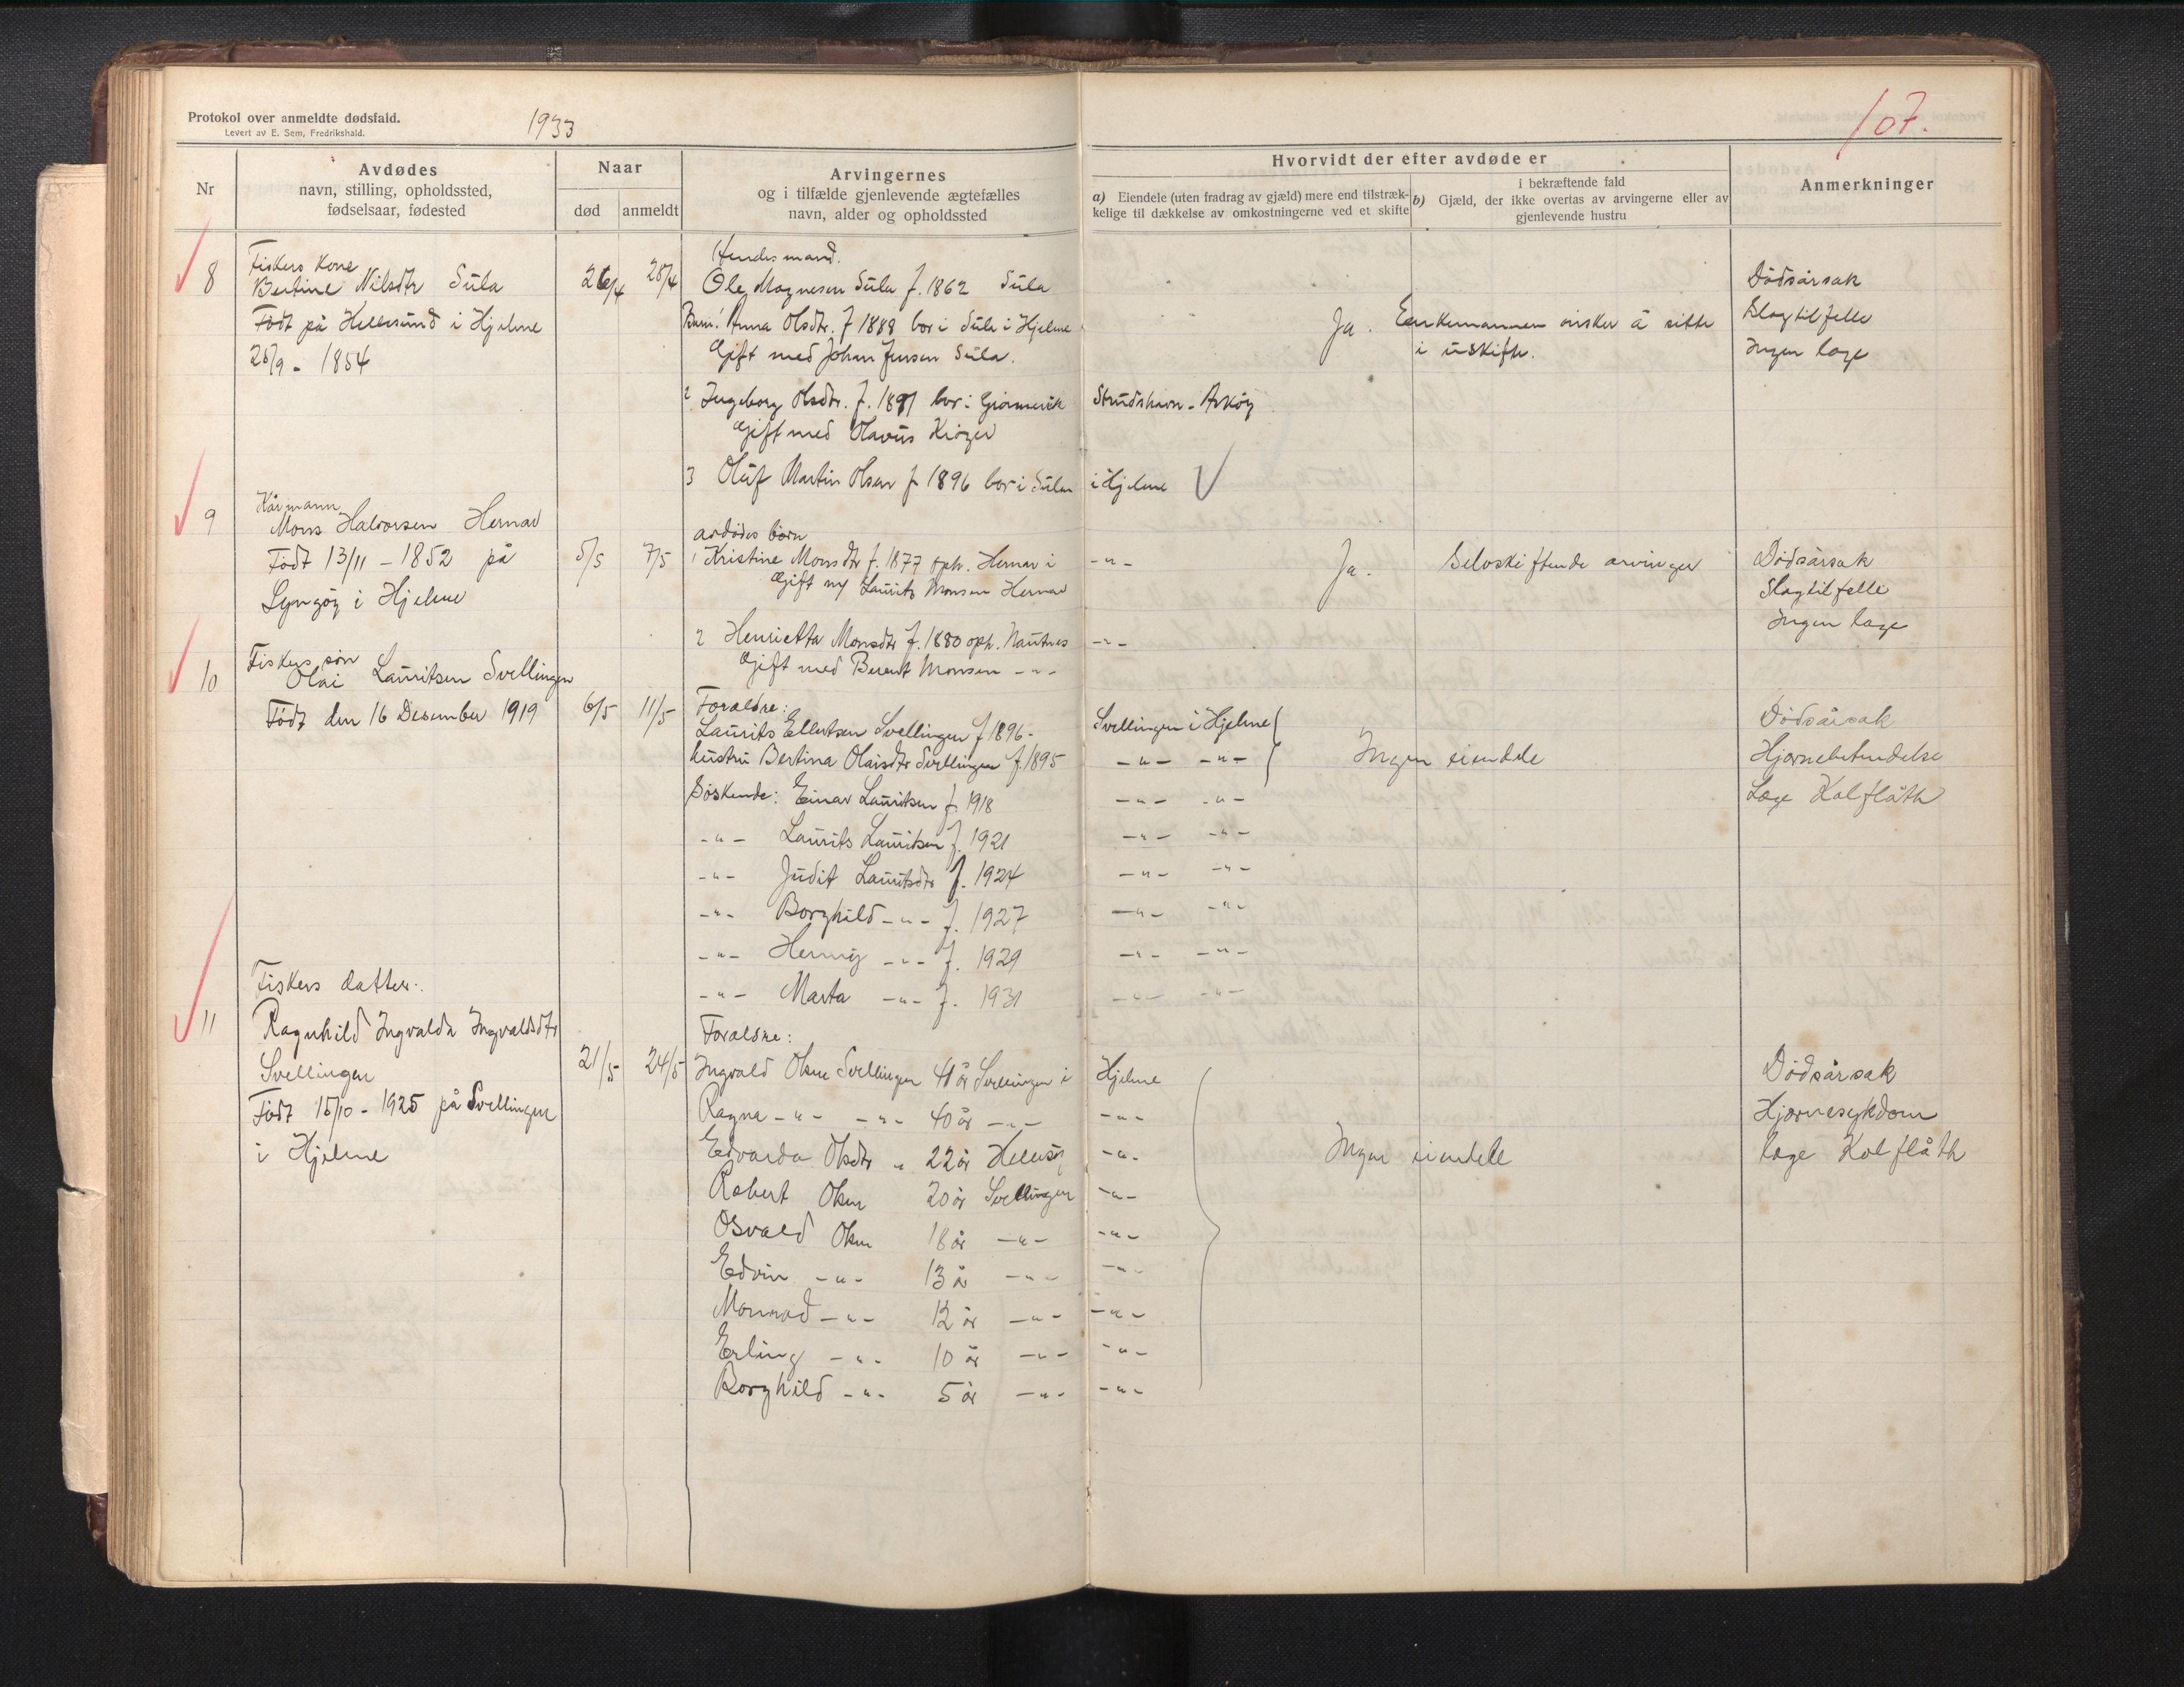 Protokol over anmeldte dødsfald.
Levert av E. Sem, Fredrikshald.
1933
107.
Nr
Avdødes
navn, stilling, opholdssted,
fødselsaar, fødested
Naar
død
anmeldt
Arvingernes
og i tilfælde gjenlevende ægtefælles
navn, alder og opholdssted
Hvorvidt der efter avdøde er
a) Eiendele (uten fradrag av gjæld) mere end tilstræk-
kelige til dækkelse av omkostningerne ved et skifte
i bekræftende fald
b) Gjæld, der ikke overtas av arvingerne eller av
gjenlevende hustru
Anmerkninger
8
Fiskers kone
Bertine Nilsdtr Sula
Født på Hellesund i Hjelme
25/9 - 1854
26/4 28/4
Hendes mand.
Ole Magnesen Sula f. 1862 Sula
Barn: Anna Olsdtr. f 1888 bor i Sula i Hjelme
Gift med Johan Jensen Sula.
2 Ingeborg Olsdtr. f. 1891 bor i Strudshavn - Askøy
Gift med Olavus
3 Oluf Martin Olsen f 1896 bor i Sula i Hjelme
Ja. Enkemannen ønsker å sitte
i uskifte.
Dødsårsak
Slagtilfelle
Ingen læge
9
Kårmann
Mons Halvorsen Hernar
Født 13/11 - 1852 på
Lyngøy i Hjelme
5/5 7/5
avdødes børn
1 Kristine Monsdtr f. 1877 oph. Hernar i -"-
Gift m/ Laurits Monsen Hernar
2 Henrietta Monsdtr f. 1880 oph. Nautnes -"-
Gift med Berent Monsen -"-
Ja. Selvskiftende arvinger
Dødsårsak
Slagtilfelle
Ingen læge
10
Fiskers søn
Olai Lauritsen Svellingen
Født den 16 Desember 1919
6/5 11/5
Foraldre:
Laurits Ellertsen Svellingen f 1896 - Svellingen i Hjelme
hustru Bertina Olaisdtr Svellingen f. 1895 -"- -"-
Søskende: Einar Lauritsen f. 1918 -"- -"-
-"- Laurits Lauritsen f. 1921 -"- -"-
-"- Judit Lauritsdtr f. 1924 -"- -"-
-"- Borghild -"- f. 1927 -"- -"-
-"- Henny -"- f. 1929 -"- -"-
-"- Marta -"- f. 1931 -"- -"-
Ingen eiendele
Dødsårsak
Hjernebetendelse
Læge Kolflåth
11
Fiskers datter.
Ragnhild Ingvalda Ingvaldsdtr
Svellingen
Født 15/10 - 1925 på Svellingen
i Hjelme
21/5 24/5
Foraldre:
Ingvald Olsen Svellingen 41 år Svellingen i Hjelme
Ragna -"- -"- 40 år -"- -"-
Edvarda Olsdtr " 22 år Hellesøy -"-
Robert Olsen 20 år Svellingen -"-
Osvald Olsen 18 år -"- -"-
Edvin -"- 13 år -"- -"-
Monrad -"- 12 år -"- -"-
Erling -"- 10 år -"- -"-
Borghild -"- 5 år -"- -"-
Ingen eiendele
Dødsårsak
Hjernesykdom
læge Kolflåth